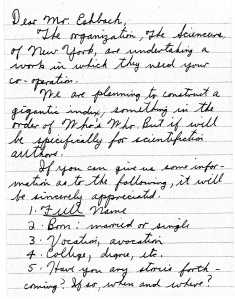 Dear Mr. Eshbach,
The organization, The Sciencers
of New York, are undertaking a
work in which they need your
co-operation.
We are planning to construct a
gigantic index, something in the
order of Who's Who. But it will
be specifically for scientifiction
authors.
If you can give us some infor-
mation as to the following, it will
be sincerely appreciated.
1. Full Name
2. Born: married or single
3. Vocation, avocation
4. College, degree, etc.
5. Have you any stories forth-
coming? If so, when and where?